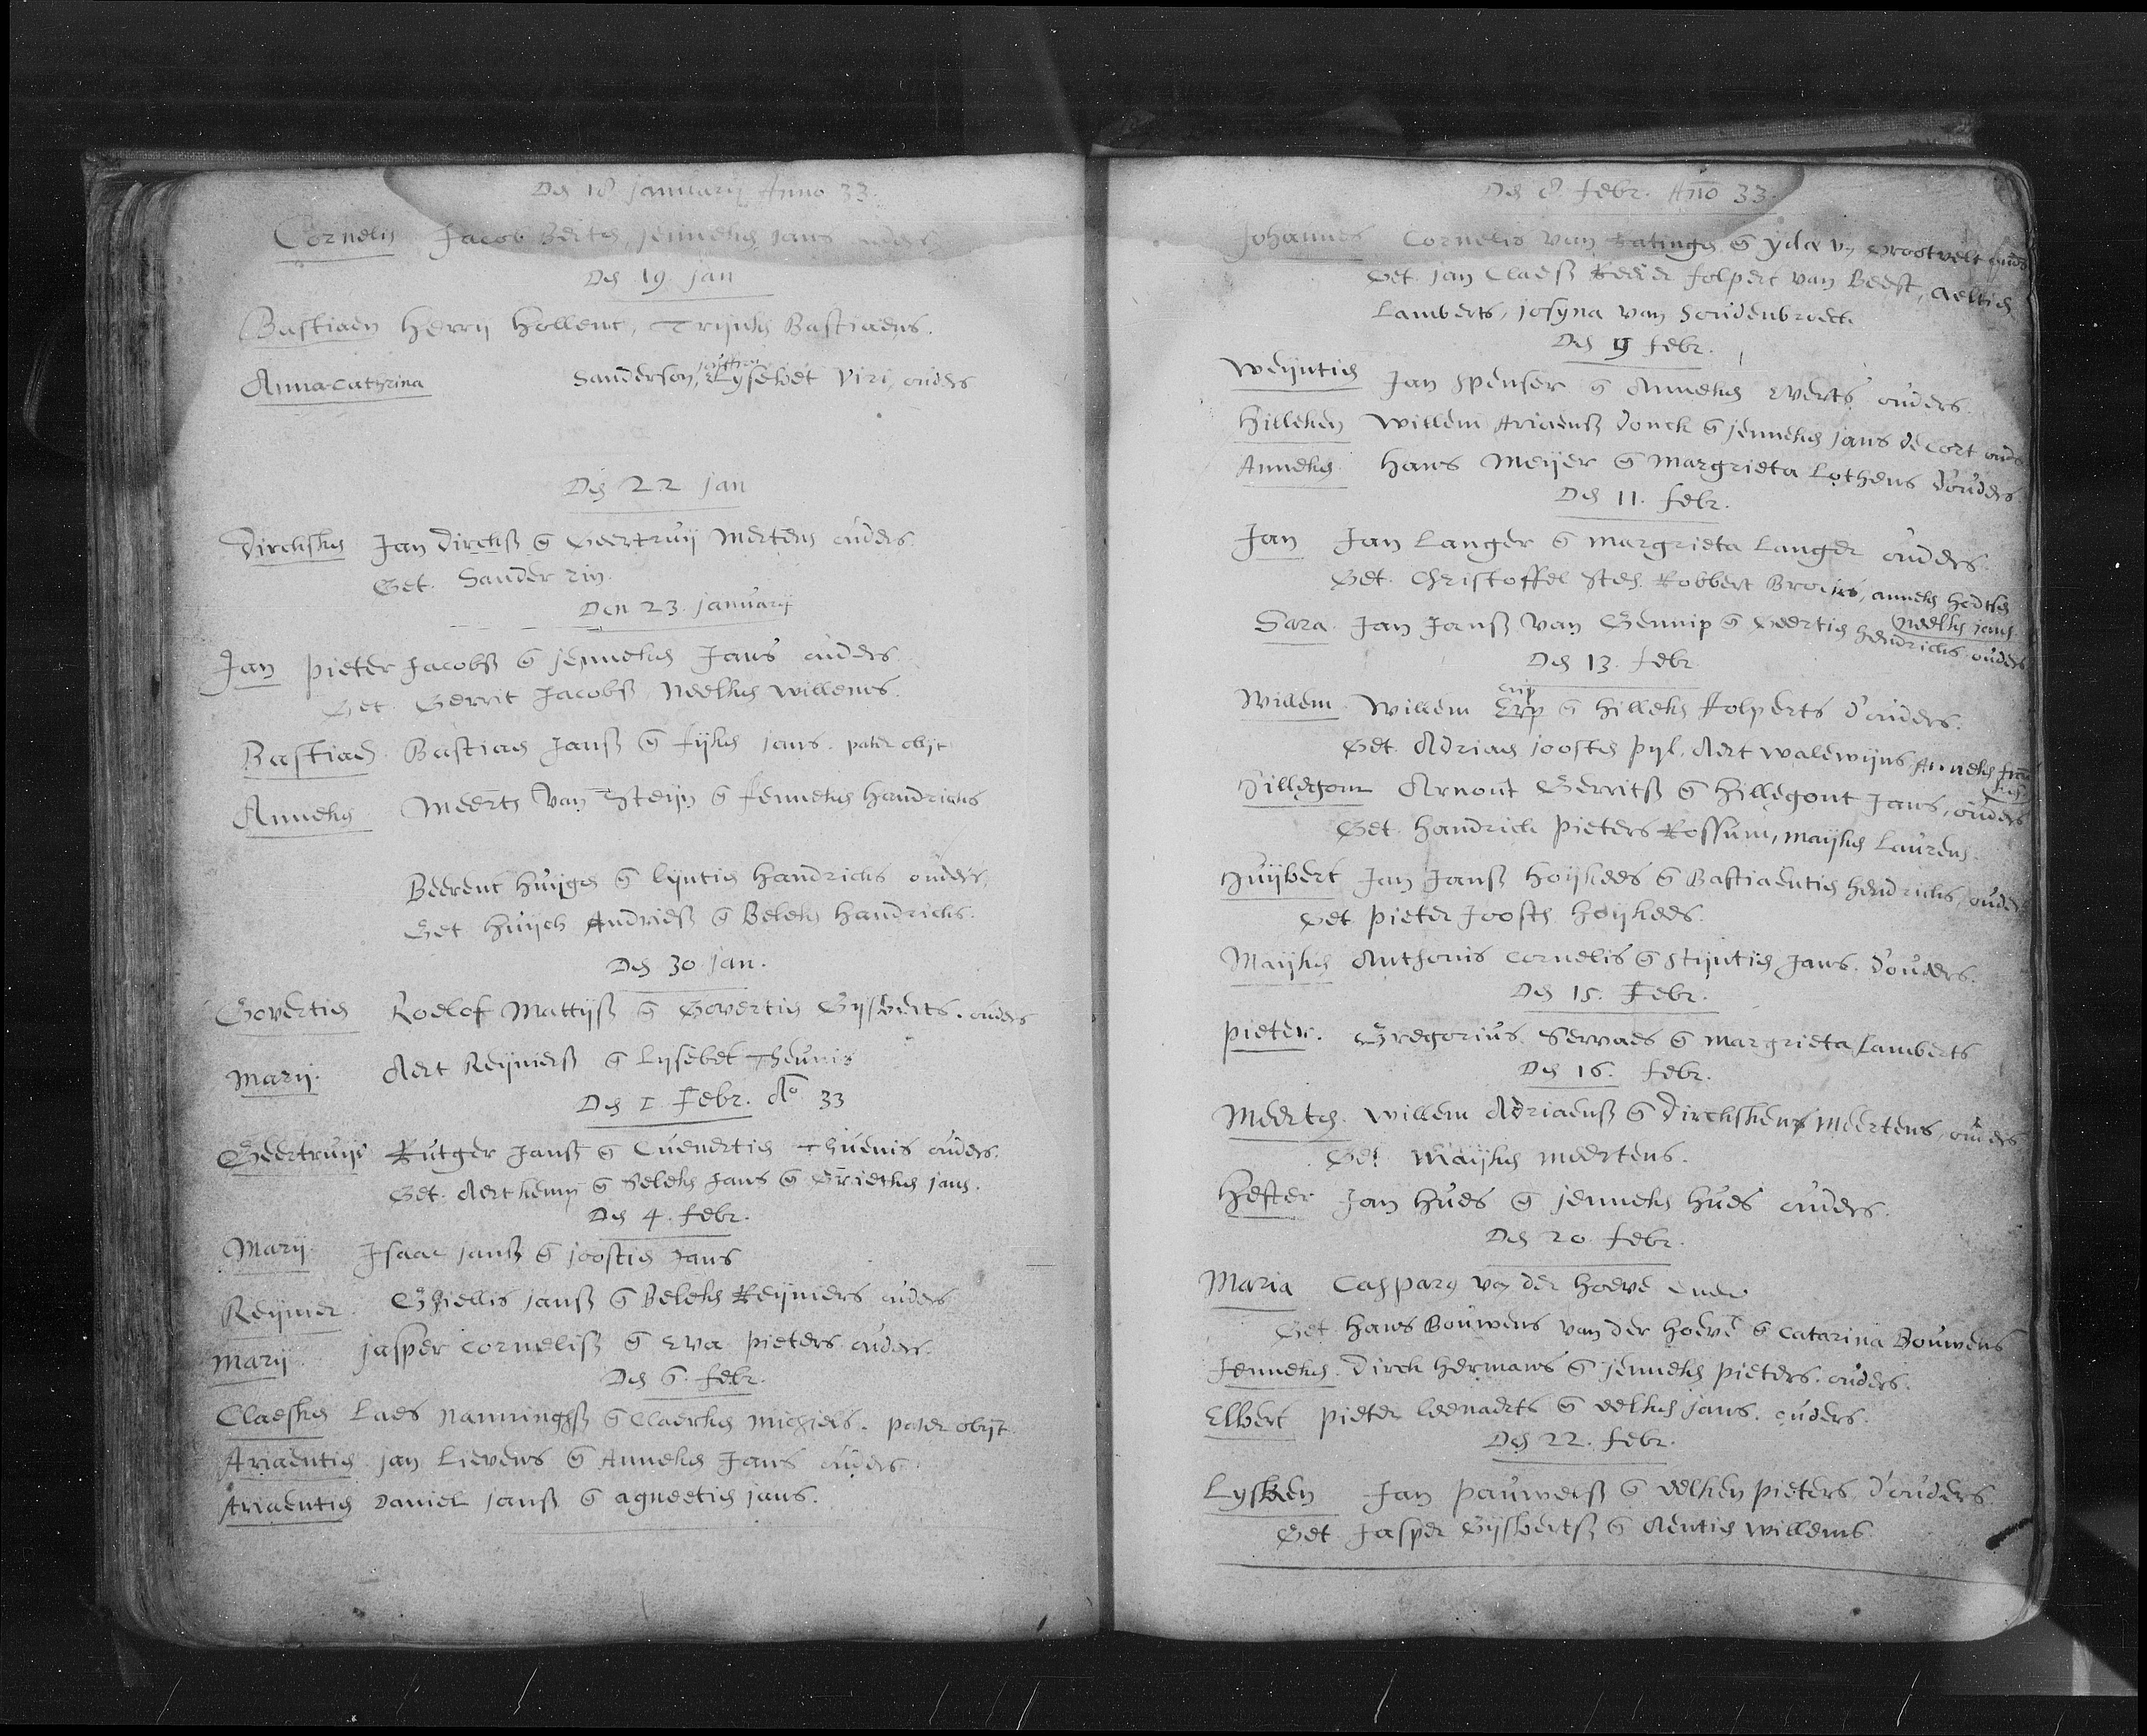 Den 18 januarij Anno 33.
Cornelis Jacob Berten, jenneken jans ouders
Den 19 jan
Bastiaen Herrij Hollent, Trijnken Bastiaens.
Anna-Cathrina Sanderson, Lysebet Viri, ouders
Den 22 jan
Dircksken Jan Dirckß en Geertruij Mertens ouders
Get. Sander
Den 23 januarij
Jan Pieter Jacobß en jenneken Jans ouders
Get. Gerrit Jacobß, Neelken Willems.
Bastiaen Bastiaen Janß en fijken jans. pater obijt
Anneken Meerten van Steijn en Jenneken Handricks
Beerent Huijgen en lijntien Handricks ouders.
Get Huijch Andrieß en Beleken Handricks.
Den 30 jan.
Govertien Roelof Mattijß en Govertien Gijsberts. ouders
Marij. Aert Reijnierß en Lysebet Theunis
Den 1 Febr. Ao 33
Geertruijt Rutger Janß en Cunertien Thuenis ouders.
Get. Aert kemp en Beleken Jans en Grietken jans.
Den 4. febr.
Marij. Isaac janß en joostien Jans
Reijnier. Ghiellis janß en Beleken Reijniers ouders
Marij jasper Cornelisß en Eva Pieters ouders.
Den 6. febr.
Claesken Laes Nanninghß en Claerken Michiels. pater obijt.
Ariaentien jan Lievens en Anneken Jans ouders
Ariaentien Daniel janß en agneetien jans.
Den 8. Febr. Ano 33.
Johannes Cornelis van Ratingen en Yda vn Grootvelt ouders
Get. jan Claesß folpert van Beest, Aeltien
Lamberts, josyna van Soudenbroeck
Den 9 febr.
Weijntien Jan Spenser en Anneken Everts ouders.
Hilleken Willem Ariaensß Donck en jenneken jans de Cort ouders
Anneken. Hans Meijer en Margrieta Lothens d'ouders
Den 11. febr.
Jan Jan Langer en Margrieta Langer ouders.
Get. Christoffel Robbert anneken
Neelken jans
Sara. Jan Janß van Gennip en Geertien Hendricks. ouders
Den 13. febr.
Willem. Willem Erp en Hilleken folperts d'ouders.
Get. Adriaen joosten Pyl. Aert Walewijns Anneken
Hillegont Arnout Gerritsß en Hillegont Jans, ouders
Get. Handrick Pieters Rossum, Maijken Laurens.
Huijbert Jan Janß Hoijkees en Bastiaentien Hendricks, ouders
Get Pieter Joosten Hoijkees.
Maijken Anthonis Cornelis en Stijntien Jans. d'ouders.
Den 15. Febr.
Pieter. Gregorius Servaes en Margrieta Lamberts
Den 16. febr.
Meerten. Willem Adriaensß en Dircksken Meertens, ouders
Get Maijken Meertens.
Hester Jan Hues en jenneken Hues ouders.
Den 20. febr.
Maria Casparus van der Hoeve ende
Get. Hans Bouwens van der Hoeve en Catarina Bouwens
Jenneken. Dirck Hermans en jenneken Pieters. ouders.
Elbert Pieter Leenaerts en eelken jans. ouders.
Den 22. febr.
Lysken Jan Pauwelsß en eelken Pieters, d'ouders
Get Jasper Gijsbertsß en Aentien Willems